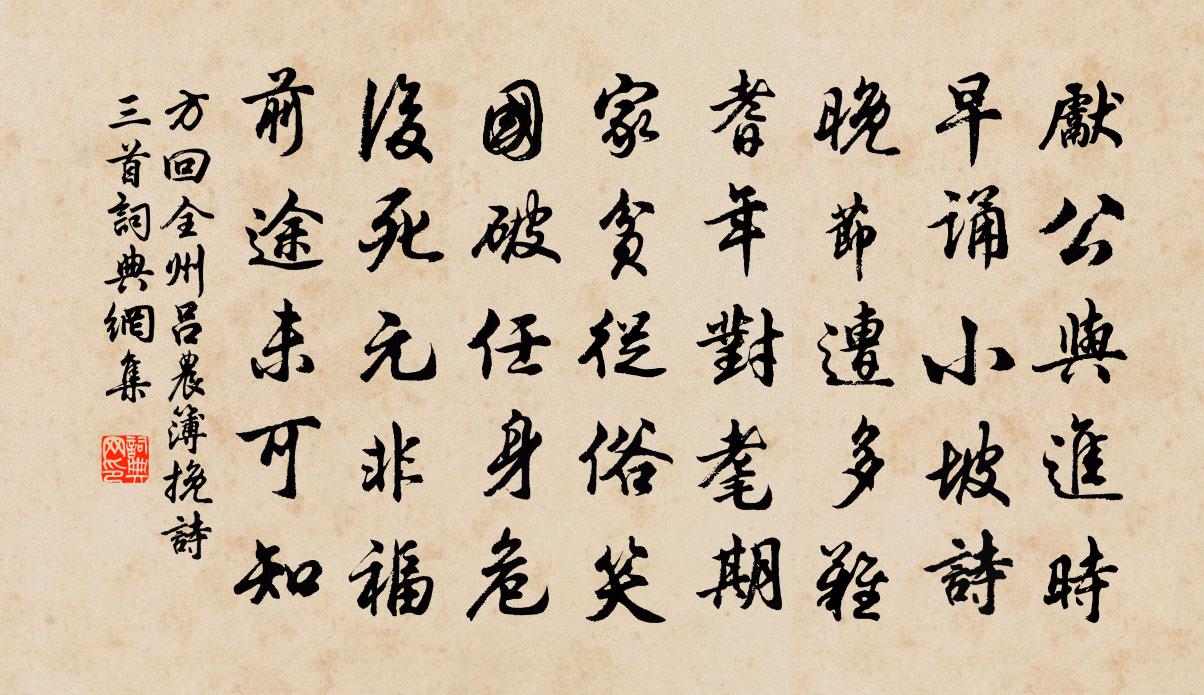 獻公與進時
早誦小坡詩
晚節遭多難
耆年對耄期
家貧從俗笑
國破任身危
後死元非福
前途未可知
方回全州呂農簿挽詩
三首詞典網集
詞典网印